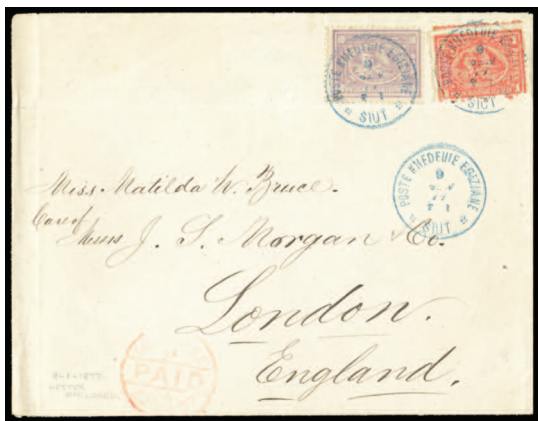 POSTE KHEDEUIE EGIZIANE
SIUT
POSTE KHEDEUIE EGIZIANE
SIUT
POSTE KHEDEUIE EGIZIANE
9
SIUT
Miss. Matilda W. Bruce.
Care of
Mess J. S. Morgan & Co.
London.
England.
PAID
LETTER
ENCLOSED.